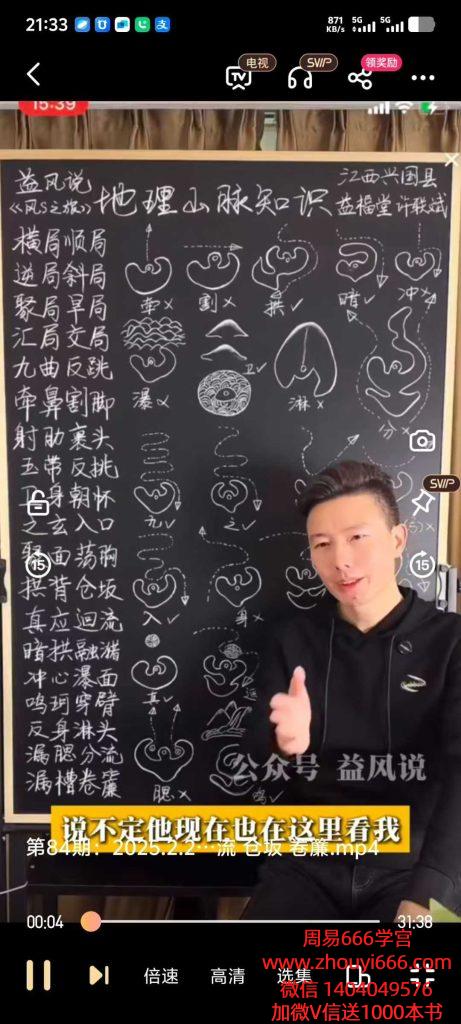 21:33
871
KB/s
5G
5G
电视
SVIP
领奖励
TV
15:39
益风说
《风S之旅》
地理山脉知识
江西兴国县
益福堂许联斌
横局顺局
逆局斜局
聚局旱局
汇局交局
九曲反跳
牵鼻割脚
射肋裹头
玉带反挑
卫身朝怀
之玄入口
聚面荡胸
拱背仓坂
真应迴流
暗拱融潴
冲心瀑面
鸣珂穿臂
反身淋头
漏腮分流
漏槽卷簾
牵×
割×
拱✓
暗✓
冲×
瀑×
卫✓
淋×
分×
九✓
之✓
入✓
身×
真✓
腮×
鸣✓
SVIP
15
15
公众号 益风说
说不定他现在也在这里看我
第84期：2025.2.2…流 仓坂 卷簾.mp4
00:04
31:38
倍速
高清
选集
周易666学宫
www.zhouyi666.com
微信 1404049576
加微V信送1000本书